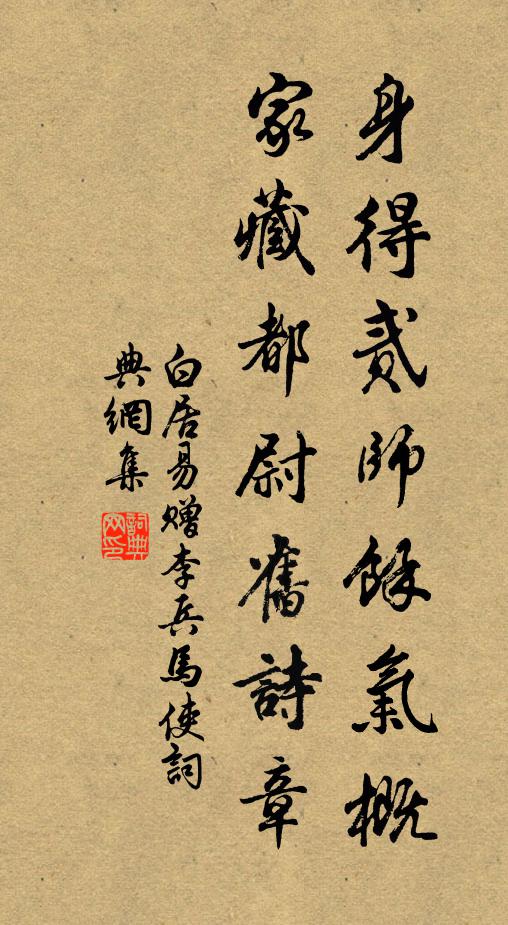 身得貳師餘氣概
家藏都尉舊詩章
白居易贈李兵馬使詞
典網集
詞典
网印